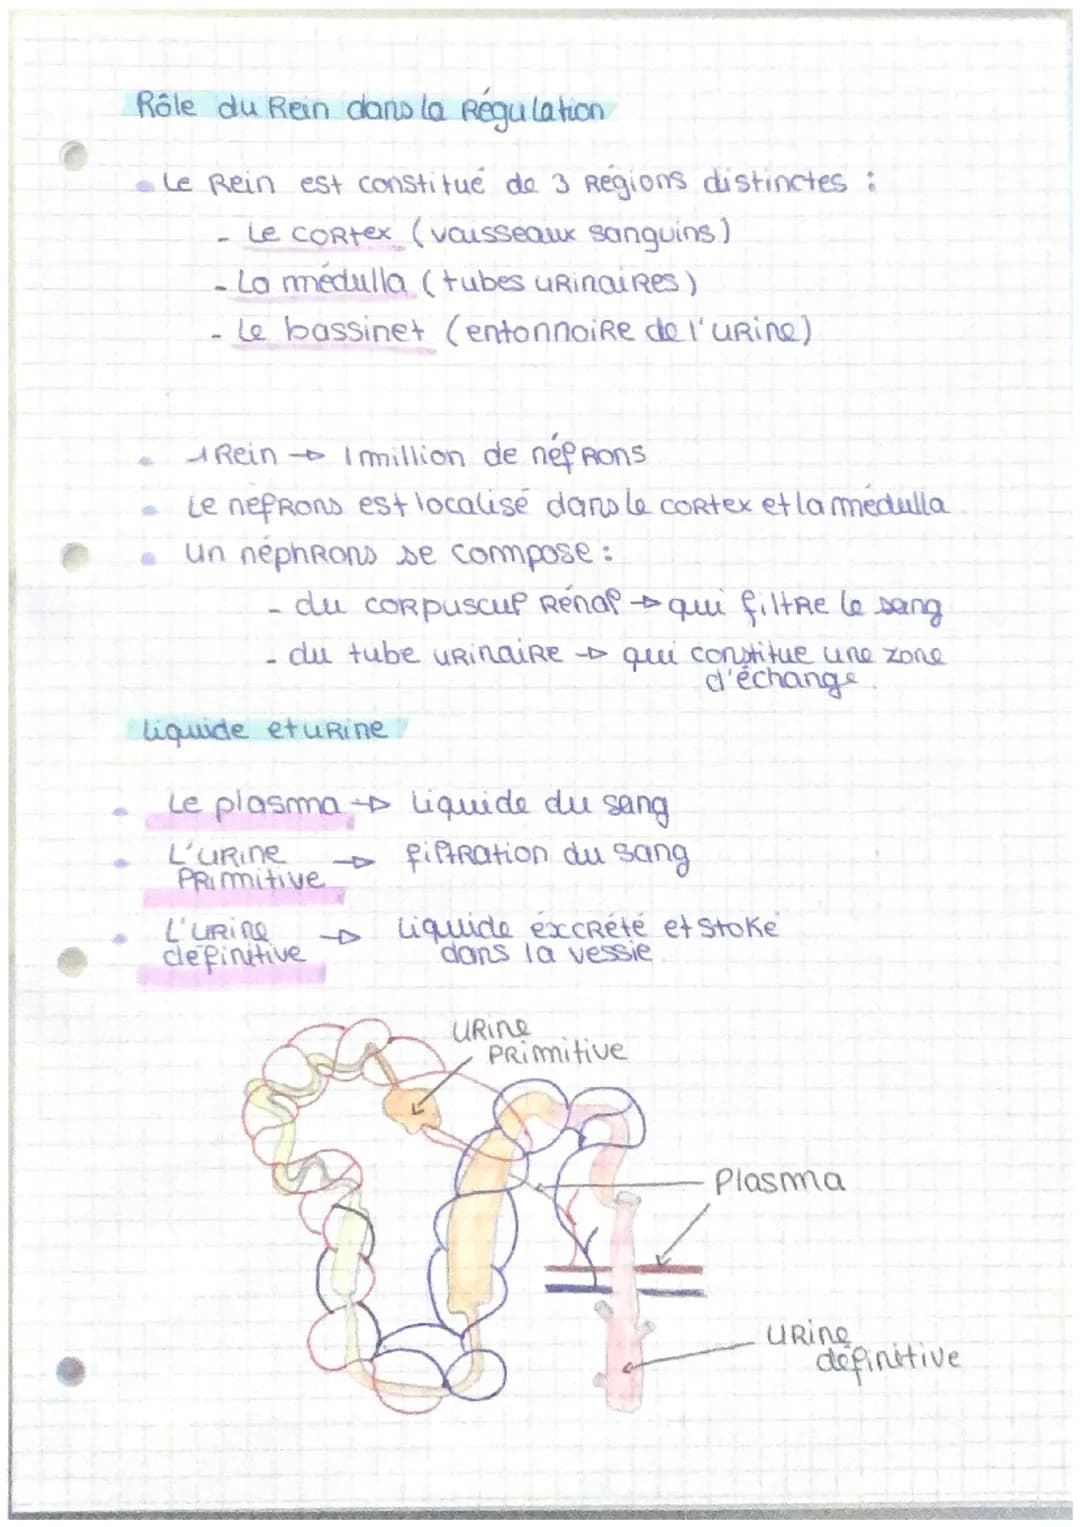 Rôle du Rein dans la Régulation
Le Rein est constitué de 3 Régions distinctes :
- Le cortex (vaisseaux sanguins)
- La médulla (tubes urinaires)
- Le bassinet (entonnoire de l'urine)
1 Rein → 1 million de néfrons
Le nefrons est localisé dans le cortex et la médulla
un néphrons se compose :
- du corpuscul Rénal → qui filtre le sang
- du tube urinaire → qui constitue une zone
d'échange
Liquide et urine
Le plasma → Liquide du sang
L'urine → filtration du sang
Primitive
L'urine → Liquide éxcrété et stoké
définitive dans la vessie
urine
Primitive
Plasma
urine
définitive